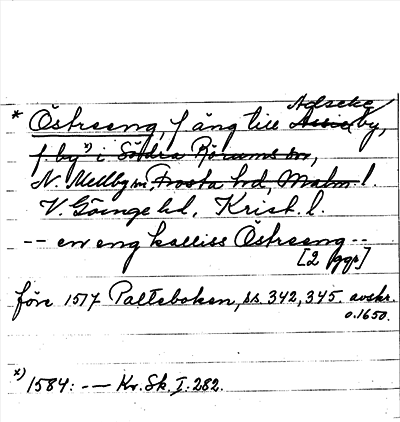 Adseke
* Östraeng, f äng till Assie by,
f. by *) i Södra Rörums sn,
N. Mellby sn Frosta hd, Malm l.
V. Göinge hd, Krist. l.
-- en eng kalliss Östraeng --
[2 ggr]
före 1517 Palteboken, ss. 342, 345. avskr.
o. 1650.
x) 1584: -- Kr. Sk. I. 282.